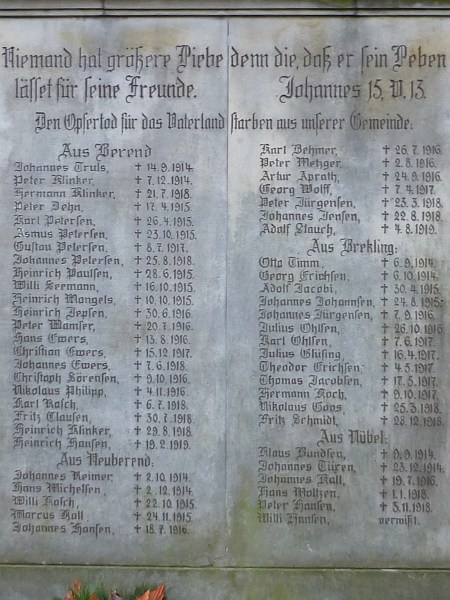 Niemand hat größere Liebe denn die, daß er sein Leben
lässet für seine Freunde. Johannes 15, V. 13.
Den Opfertod für das Vaterland starben aus unserer Gemeinde:
Aus Berend
Johannes Truls, † 14.9.1914.
Peter Klinker, † 7.12.1914.
Hermann Klinker, † 21.7.1918.
Peter Dehn, † 17.4.1915.
Karl Petersen, † 26.4.1915.
Asmus Petersen, † 23.10.1915.
Gustav Petersen, † 8.7.1917.
Johannes Petersen, † 25.8.1918.
Heinrich Paulsen, † 28.6.1915.
Willi Seemann, † 16.10.1915.
Heinrich Mangels, † 10.10.1915.
Heinrich Jepsen, † 30.6.1916.
Peter Wamser, † 20.7.1916.
Hans Ewers, † 13.8.1916.
Christian Ewers, † 15.12.1917.
Johannes Ewers, † 7.6.1918.
Christoph Sörensen, † 9.10.1916.
Nikolaus Philipp, † 4.11.1916.
Karl Kasch, † 6.7.1918.
Fritz Clausen, † 30.7.1918.
Heinrich Klinker, † 29.8.1918.
Heinrich Hansen, † 19.2.1919.
Aus Neuberend:
Johannes Reimer, † 2.10.1914.
Hans Michelsen, † 2.12.1914.
Willi Kasch, † 22.10.1915.
Marcus Kall, † 24.11.1915.
Johannes Hansen, † 18.7.1916.
Karl Dehmer, † 26.7.1916.
Peter Metzger, † 2.8.1916.
Artur Aprath, † 24.9.1916.
Georg Wolff, † 7.4.1917.
Peter Jürgensen, † 23.3.1918.
Johannes Jensen, † 22.8.1918.
Adolf Stauch, † 4.8.1919.
Aus Brekling:
Otto Timm, † 6.9.1914.
Georg Erichsen, † 6.10.1914.
Adolf Jacobi, † 30.4.1915.
Johannes Johannsen, † 24.8.1915.
Johannes Jürgensen, † 7.9.1916.
Julius Ohlsen, † 26.10.1916.
Karl Ohlsen, † 7.6.1917.
Julius Glüsing, † 16.4.1917.
Theodor Erichsen, † 4.5.1917.
Thomas Jacobsen, † 17.5.1917.
Hermann Koch, † 9.10.1917.
Nikolaus Goos, † 25.3.1918.
Fritz Schmidt, † 28.12.1918.
Aus Nübel:
Klaus Bundsen, † 9.9.1914.
Johannes Türen, † 23.12.1914.
Johannes Kall, † 19.7.1916.
Hans Moltzen, † 1.1.1918.
Peter Hansen, † 3.11.1918.
Willi Hansen, vermißt.